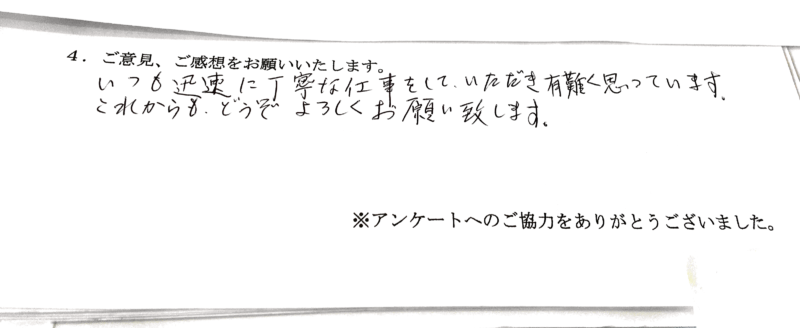 4. ご意見、ご感想をお願いいたします。
いつも迅速に丁寧な仕事をして、いただき有難く思っています。
これからも、どうぞ よろしくお願い致します。
※アンケートへのご協力をありがとうございました。